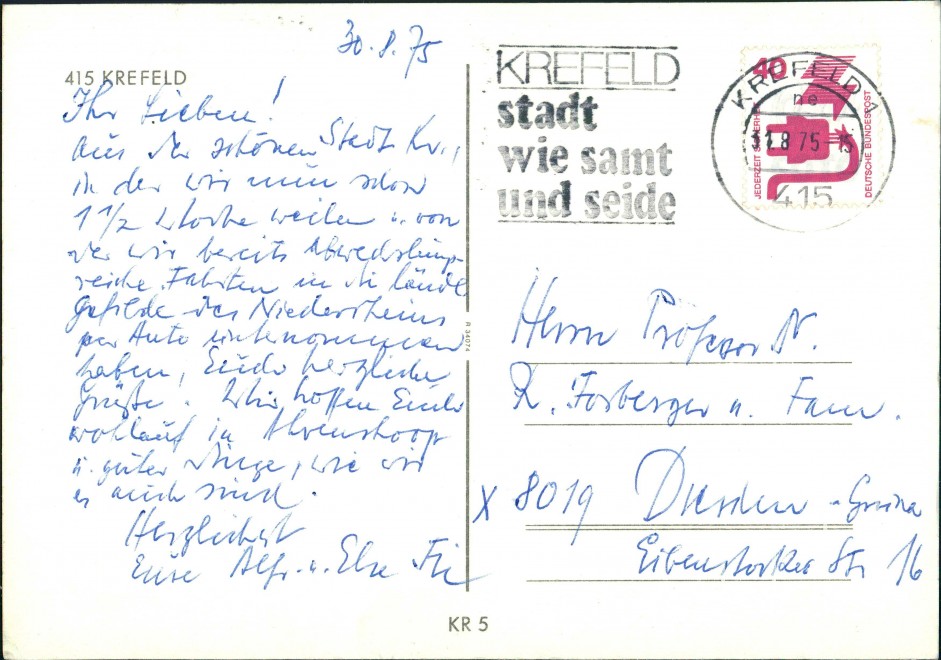 30.8.75
415 KREFELD
Ihr Lieben!
Aus der schönen Stadt Kr.,
in der wir nun schon
1 1/2 Woche weilen u. von
der wir bereits Abwechslungs-
reiche Fahrten in die ländl.
Gefilde des Niederrheins
per Auto unternommen
haben, Euch herzliche
Grüße. Wir hoffen Euch
wohlauf in Ahrenshoop
u. guter Dinge, wie wir
es auch sind.
Herzlichst
Eure Alfr. u. Else
KREFELD
stadt
wie samt
und seide
KREFELD 1
ne
31.8.75-15
415
40
JEDERZEIT SICHERHEIT
DEUTSCHE BUNDESPOST
R 34074
Herrn Professor Dr.
R. Forberger u. Fam.
X 8019 Dresden - Gruna
Eibenstocker Str. 16
KR 5